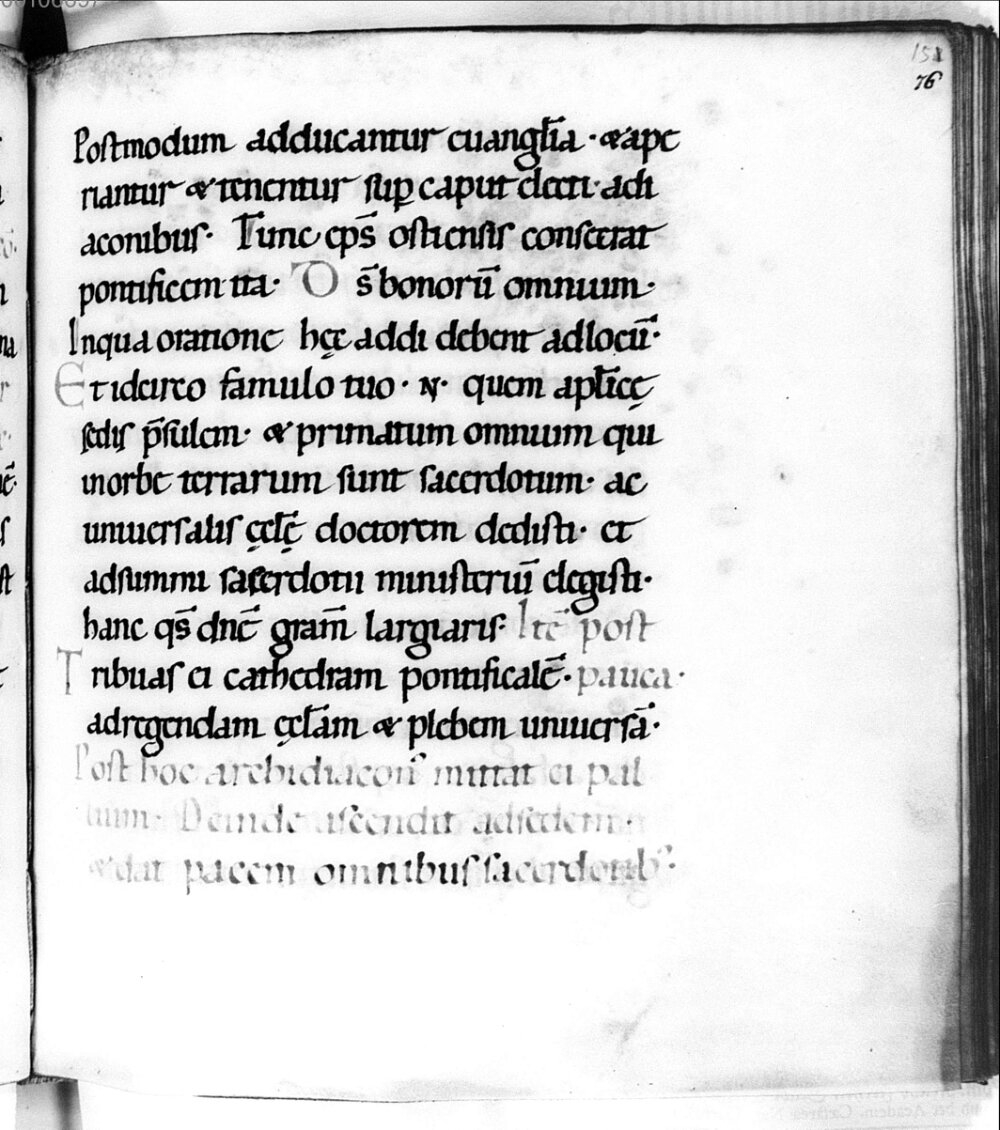 151
76
Postmodum adducantur euangl̄ia · & ape
riantur & tenentur sup̱ caput electi · a di
aconibus · Tunc ep̄s ostiensis consecrat
pontificem ita · D s̄ bonorū omnium ·
In qua oratione hęc addi debent ad locū ·
Et idcirco famulo tuo · N · quem apl̄icę
sedis p̄sulem · & primatum omnium qui
in orbe terrarum sunt sacerdotum · ac
uniuersalis ęcl̄ę doctorem dedisti · et
ad summi sacerdotii ministeriū elegisti ·
hanc qs̄ dn̄e grām largiaris · Itē post
Tribuas ei cathedram pontificalē · pauca ·
ad regendam ęcl̄am & plebem uniuersā ·
Post hoc archidiacon' mittat ei pal
lium · Deinde ascendit ad sedem ·
& dat pacem omnibus sacerdotib' ·